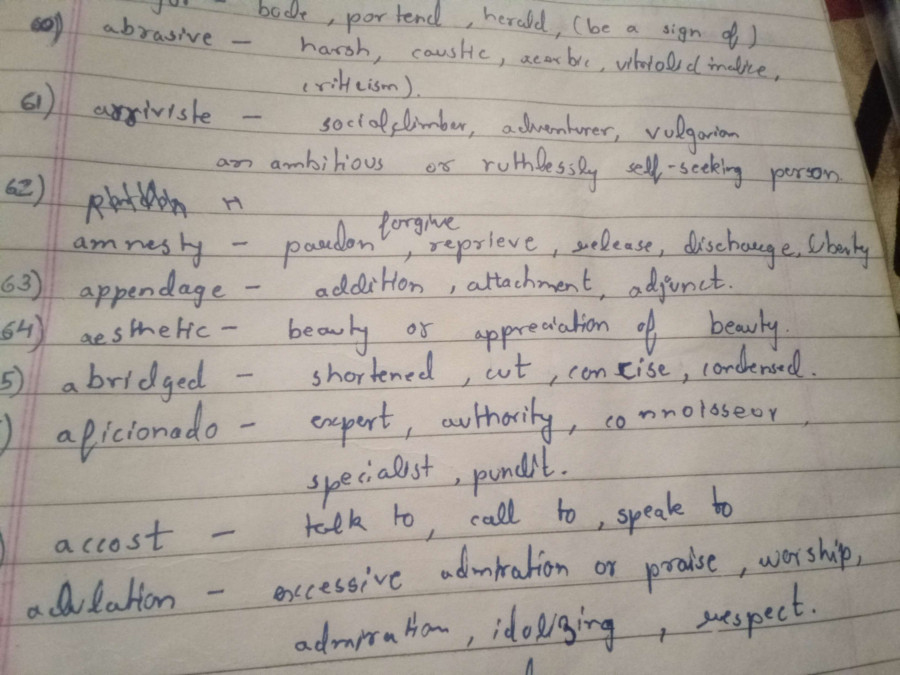 - bode, portend, herald, (be a sign of)
60) abrasive - harsh, caustic, acerbic,
criticism).
61) arriviste - social climber, adventurer, vulgarian
an ambitious or ruthlessly self-seeking person
62)
forgive
amnesty - pardon, reprieve, release, discharge, liberty
63) appendage - addition, attachment, adjunct.
64) aesthetic - beauty or appreciation of beauty.
5) abridged - shortened, cut, concise, condensed.
) aficionado - expert, authority, connoisseur,
specialist, pundit.
) accost - talk to, call to, speak to
adulation - excessive admiration or praise, worship,
admiration, idolizing, respect.